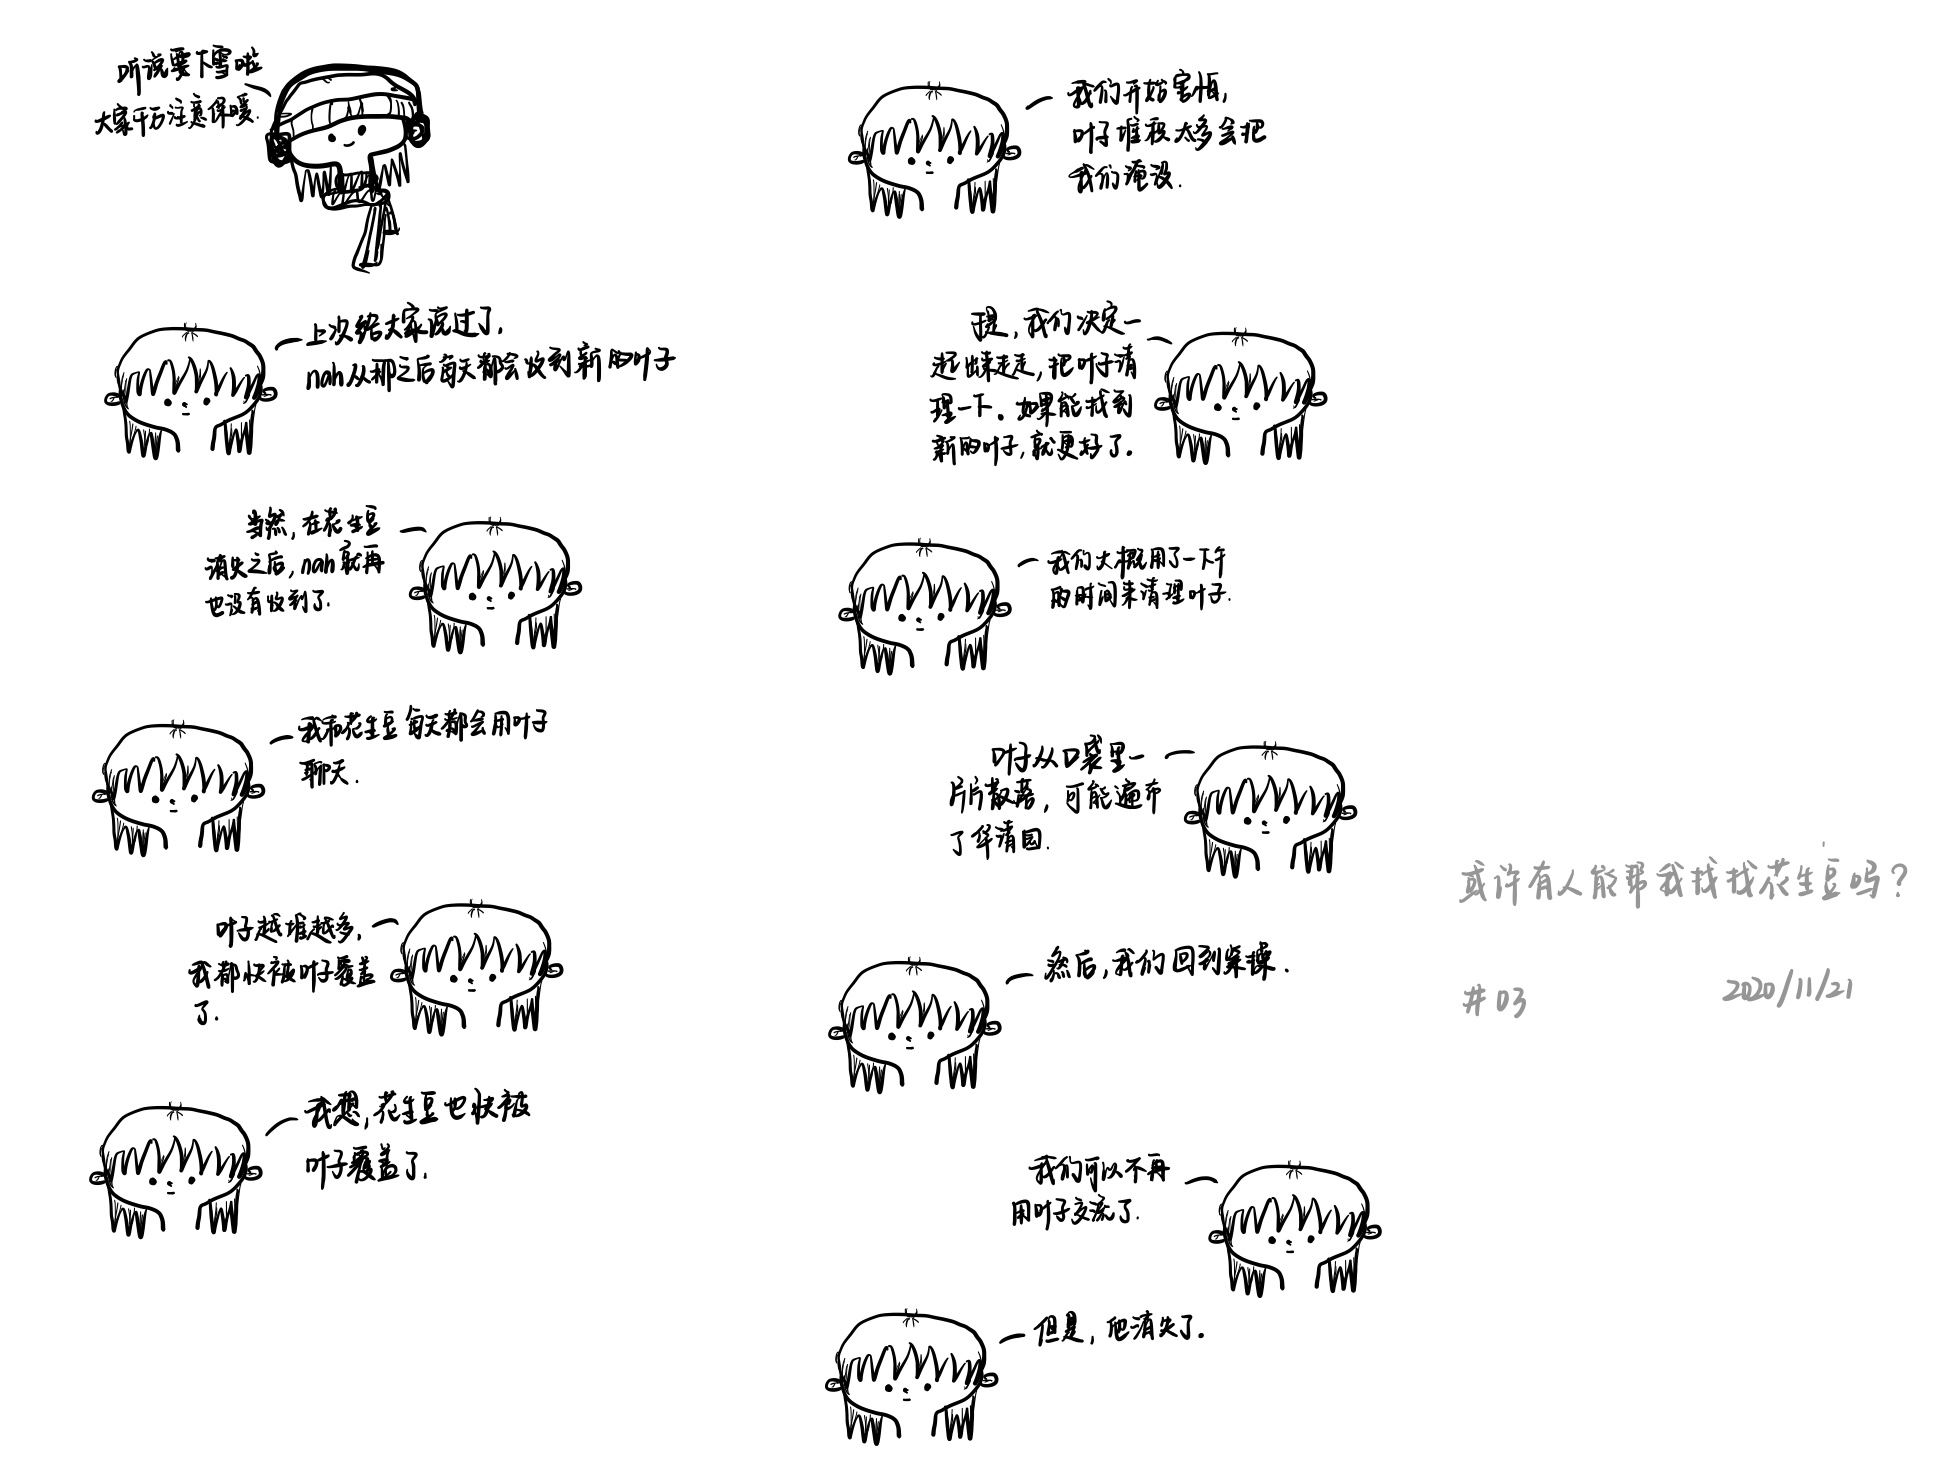 听说要下雪啦
大家千万注意保暖.
上次给大家说过了,
nah从那之后每天都会收到新的叶子
当然,在花生豆
消失之后,nah就再
也没有收到了.
我和花生豆每天都会用叶子
聊天.
叶子越堆越多,
我都快被叶子覆盖
了.
我想,花生豆也快被
叶子覆盖了.
我们开始害怕,
叶子堆积太多会把
我们淹没.
于是,我们决定一
起出来走走,把叶子清
理一下。如果能找到
新的叶子,就更好了.
我们大概用了一下午
的时间来清理叶子.
叶子从口袋里一
片片散落,可能遍布
了华清园.
然后,我们回到紫操.
我们可以不再
用叶子交流了.
但是,他消失了.
或许有人能帮我找找花生豆吗?
#03
2020/11/21